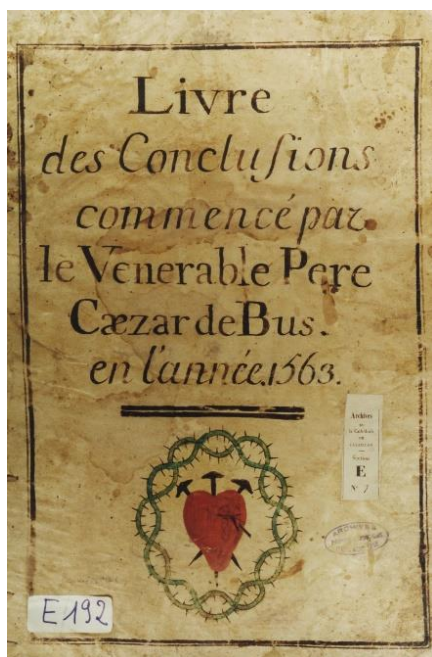 Livre
des Conclusions
commencé par
le Venerable Pere
Cæzar de Bus.
en l'année.1563.
Archives
E
N° 7
ARCHIVES
E 192